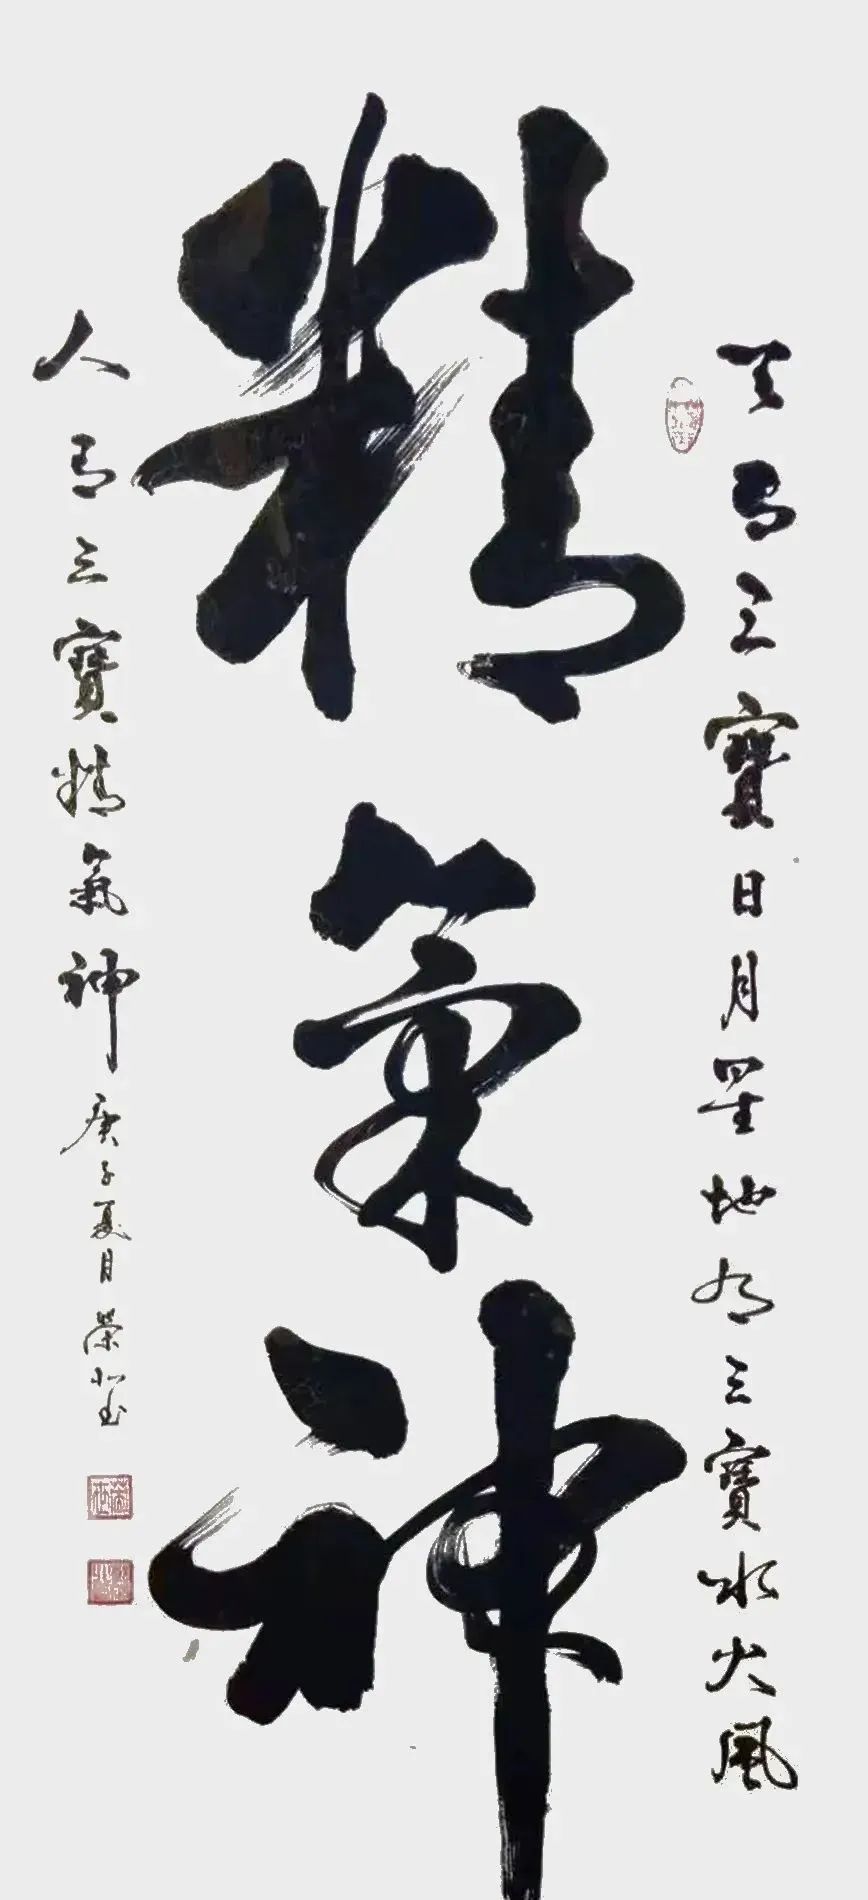 天有三寶日月星地有三寶水火風
精氣神
人有三寶精氣神
庚子夏月榮